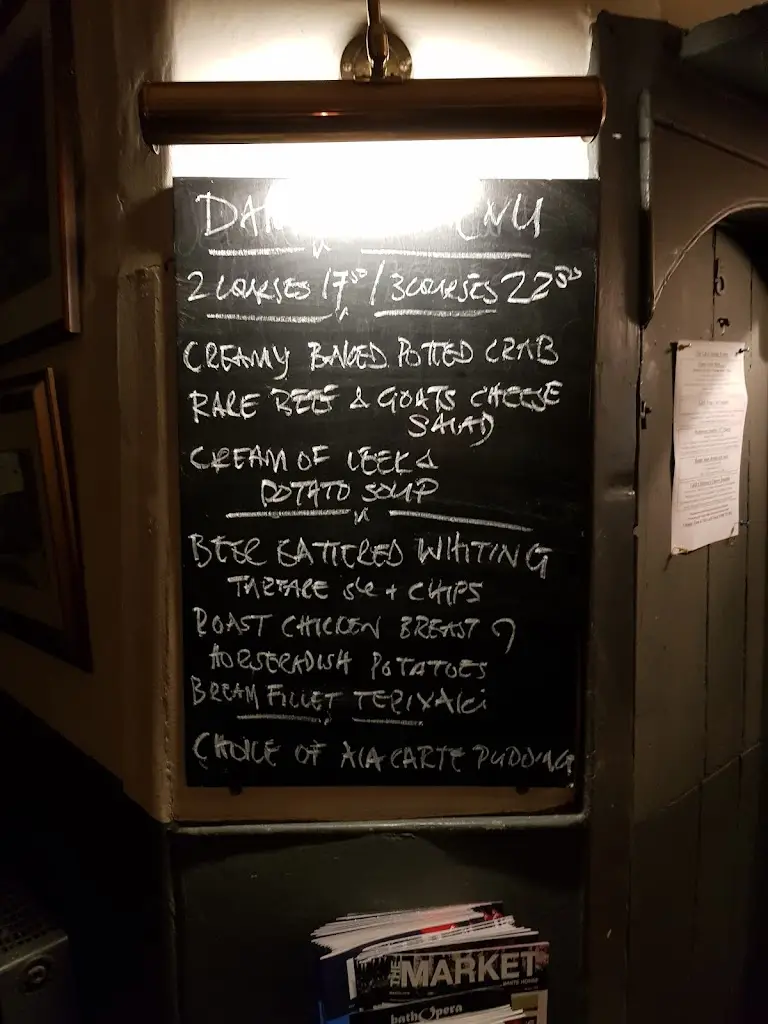 MENU
2 COURSES 17.50 / 3 COURSES 22.50
CREAMY BAKED POTTED CRAB
RARE BEEF & GOATS CHEESE
SALAD
CREAM OF LEEK &
POTATO SOUP
BEER BATTERED WHITING
TARTARE SCE + CHIPS
ROAST CHICKEN BREAST
HORSERADISH POTATOES
BREAM FILLET TERIYAKI
CHOICE OF A LA CARTE PUDDING
THE MARKET
WHITE HORSE
bathOpera